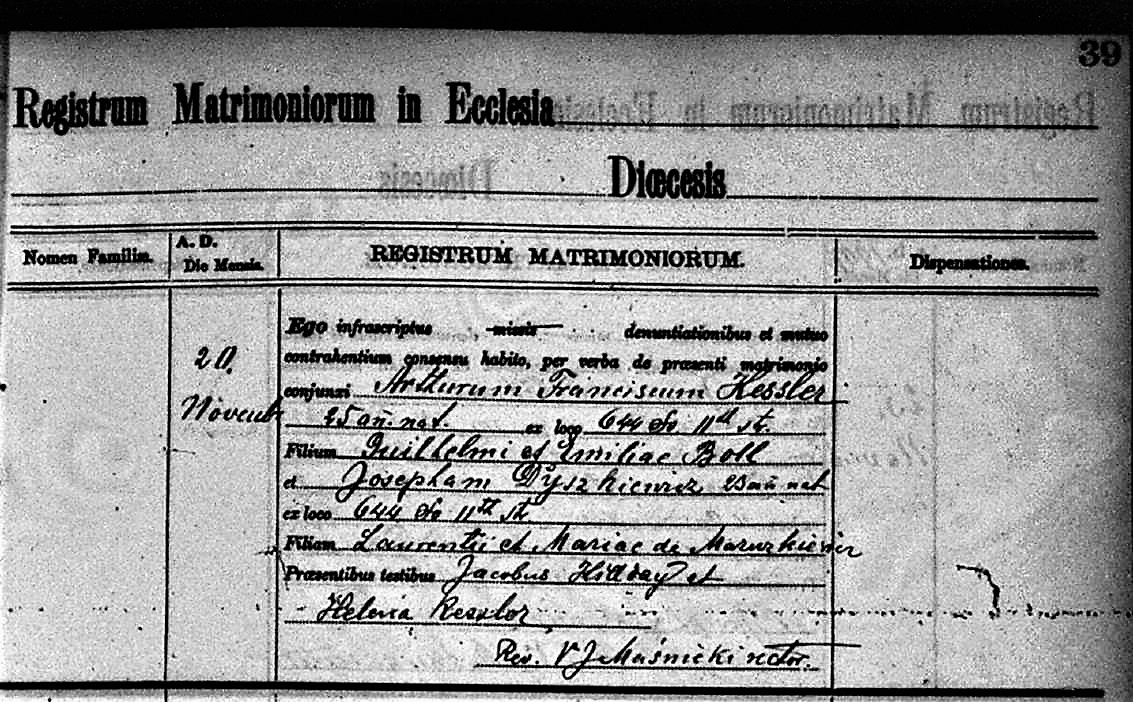 39
Registrum Matrimoniorum in Ecclesia
Diœcesis
Nomen Familiæ.
A. D.
Die Mensis.
REGISTRUM MATRIMONIORUM.
Dispensationes.
20
Novemb
Ego infrascriptus missis denuntiationibus et mutuo
contrahentium consensu habito, per verba de præsenti matrimonio
conjunxi Arthurum Franciscum Kessler
25 añ. nat. ex loco 644 So 11th st.
Filium Guilhelmi et Emiliae Boll
et Josepham Dyszkiewicz 23 añ nat
ex loco 644 So 11th st
Filiam Laurentii et Mariae de
Præsentibus testibus Jacobus Hillday et
Helena Kessler
Rev. V J Maśnicki rector.